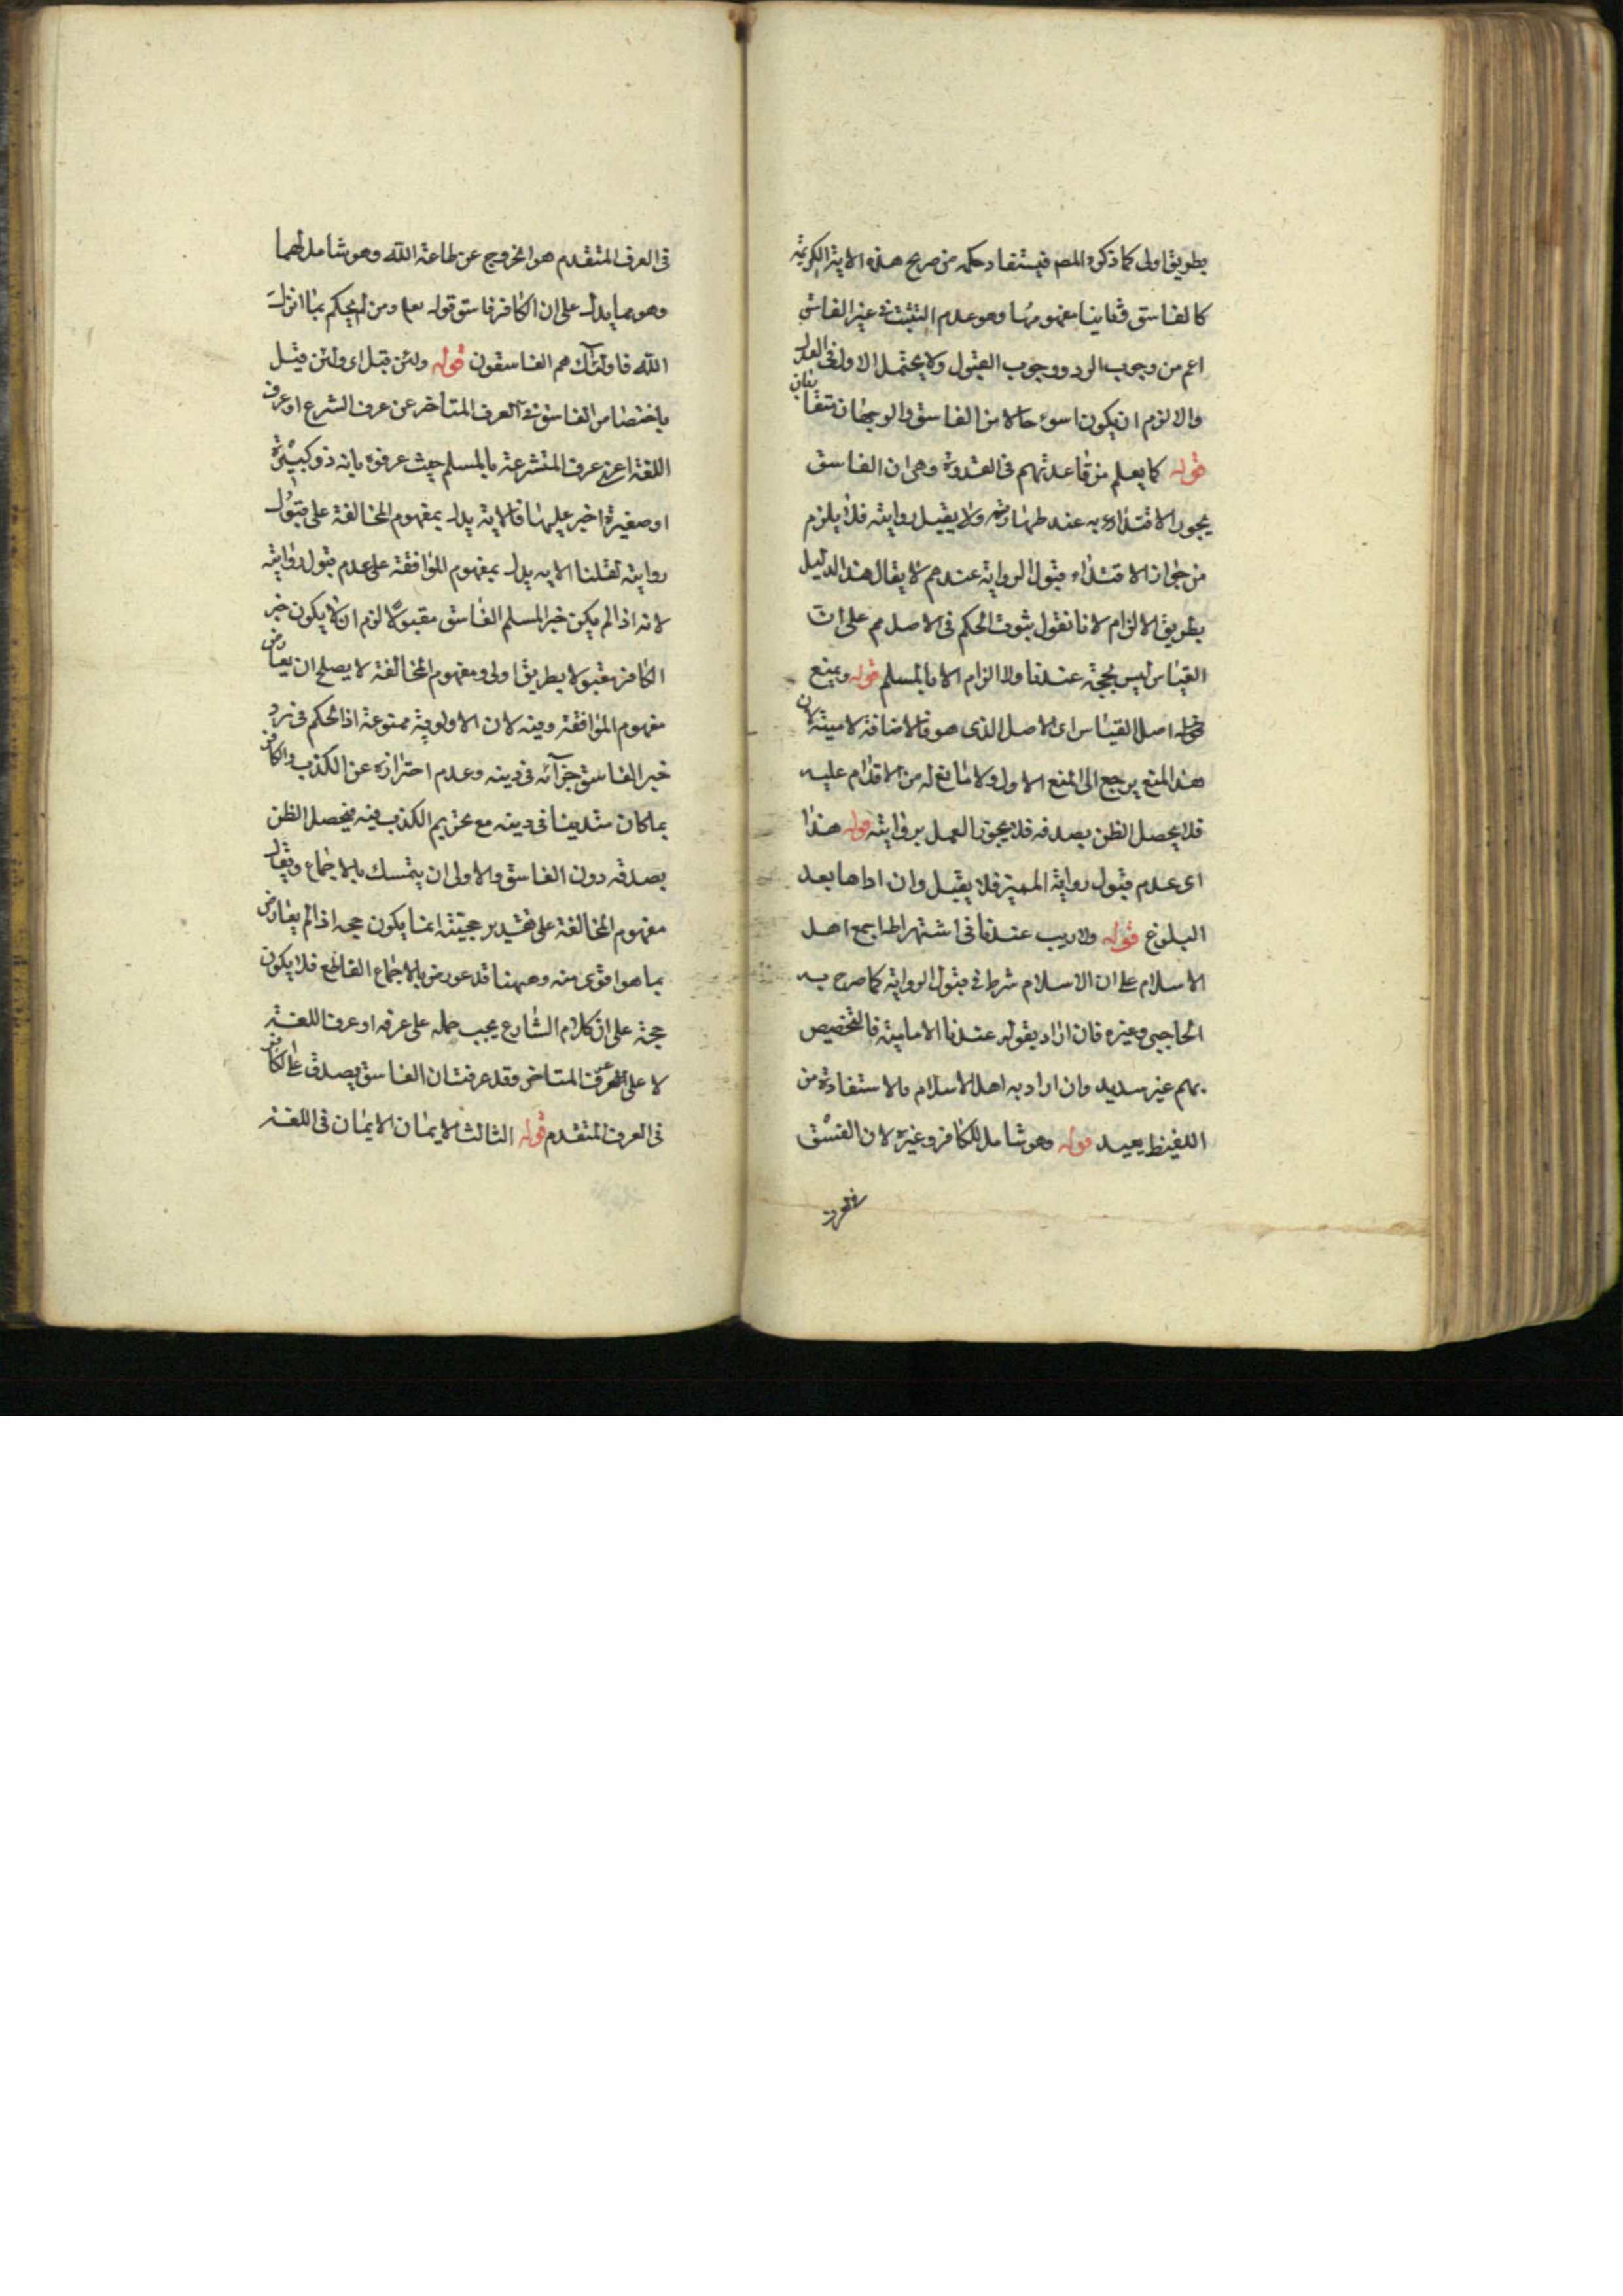 بطريق اولى كما ذكره المصم فيستفاد حكمه من صريح هذه الاية الكريمة
كالفاسق وثانيا مفهومها وهو عدم التثبت فى غير الفاسق
اعم من وجوب الرد ووجوب القبول ولا يحتمل الاول فى العدل
والا لزم ان يكون اسوء حالا من الفاسق والوجهان متقاربان
قوله كما يعلم من قاعدتهم فى القدوة وهى ان الفاسق
يجوز الاقتداء به عندهم ولا يقبل روايته فلا يلزم
من جواز الاقتداء قبول الرواية عندهم لا يقال هذا الدليل
بطريق الالزام لانا نقول ثبوت الحكم فى الاصل مم على ان
القياس ليس بحجة عندنا ولا الزام الا بالمسلم قوله وبمنع
اصل القياس اى الاصل الذى هو فالاضافة لامية لان
هذا المنع يرجع الى المنع الاول ولا مانع له من الاقدام عليه
فلا يحصل الظن بصدقه فلا يجوز العمل بروايته قوله هذا
اى عدم قبول رواية المميز فلا يقبل وان اداها بعد
البلوغ قوله ولا ريب عندنا فى اشتهراطها اجمع اهل
الاسلام على ان الاسلام شرط فى قبول الرواية كما صرح به
الحاجبى وغيره فان اراد بقوله عندنا الامامية فالتخصيص
بهم غير سديد وان اراد به اهل الاسلام فالاستفادة من
اللفظ بعيد قوله وهو شامل للكافر وغيره لان الفسق
فى العرف
فى العرف المتقدم هو الخروج عن طاعة الله وهو شامل لهما
وهو مما يدل على ان الكافر فاسق قوله تعم ومن لم يحكم بما انزل
الله فاولئك هم الفاسقون قوله ولئن قبل اى ولئن قيل
باختصاص الفاسق فى العرف المتاخر عن عرف الشرع او عرف
اللغة اعنى عرف المتشرعة بالمسلم حيث عرفوه بانه ذو كبيرة
او صغيرة اخبر عليها فالاية يدل بمفهوم المخالفة على قبول
روايته لقلنا الاية يدل بمفهوم الموافقة على عدم قبول روايته
لانه اذا لم يكن خبر المسلم الفاسق مقبولا لزم ان لا يكون خبر
الكافر مقبولا بطريق اولى ومفهوم المخالفة لا يصلح ان يعارض
مفهوم الموافقة وفيه لان الاولوية ممنوعة اذ الحكم فى رد
خبر الفاسق جرأته فى دينه وعدم احترازه عن الكذب والكافر
بما كان متدينا فى دينه مع تحريم الكذب فيه فيحصل الظن
بصدقه دون الفاسق والاولى ان يتمسك بالاجماع ويقال
مفهوم المخالفة على تقدير حجيته انما يكون حجه اذا لم يعارض
بما هو اقوى منه وههنا قد عورض بالاجماع القاطع فلا يكون
حجة على ان كلام الشارع يجب حمله على عرفه او عرف اللغة
لا على العرف المتاخر وقد عرفت ان الفاسق يصدق على الكافر
فى العرف المتقدم قوله الثالث الايمان الايمان فى اللغة